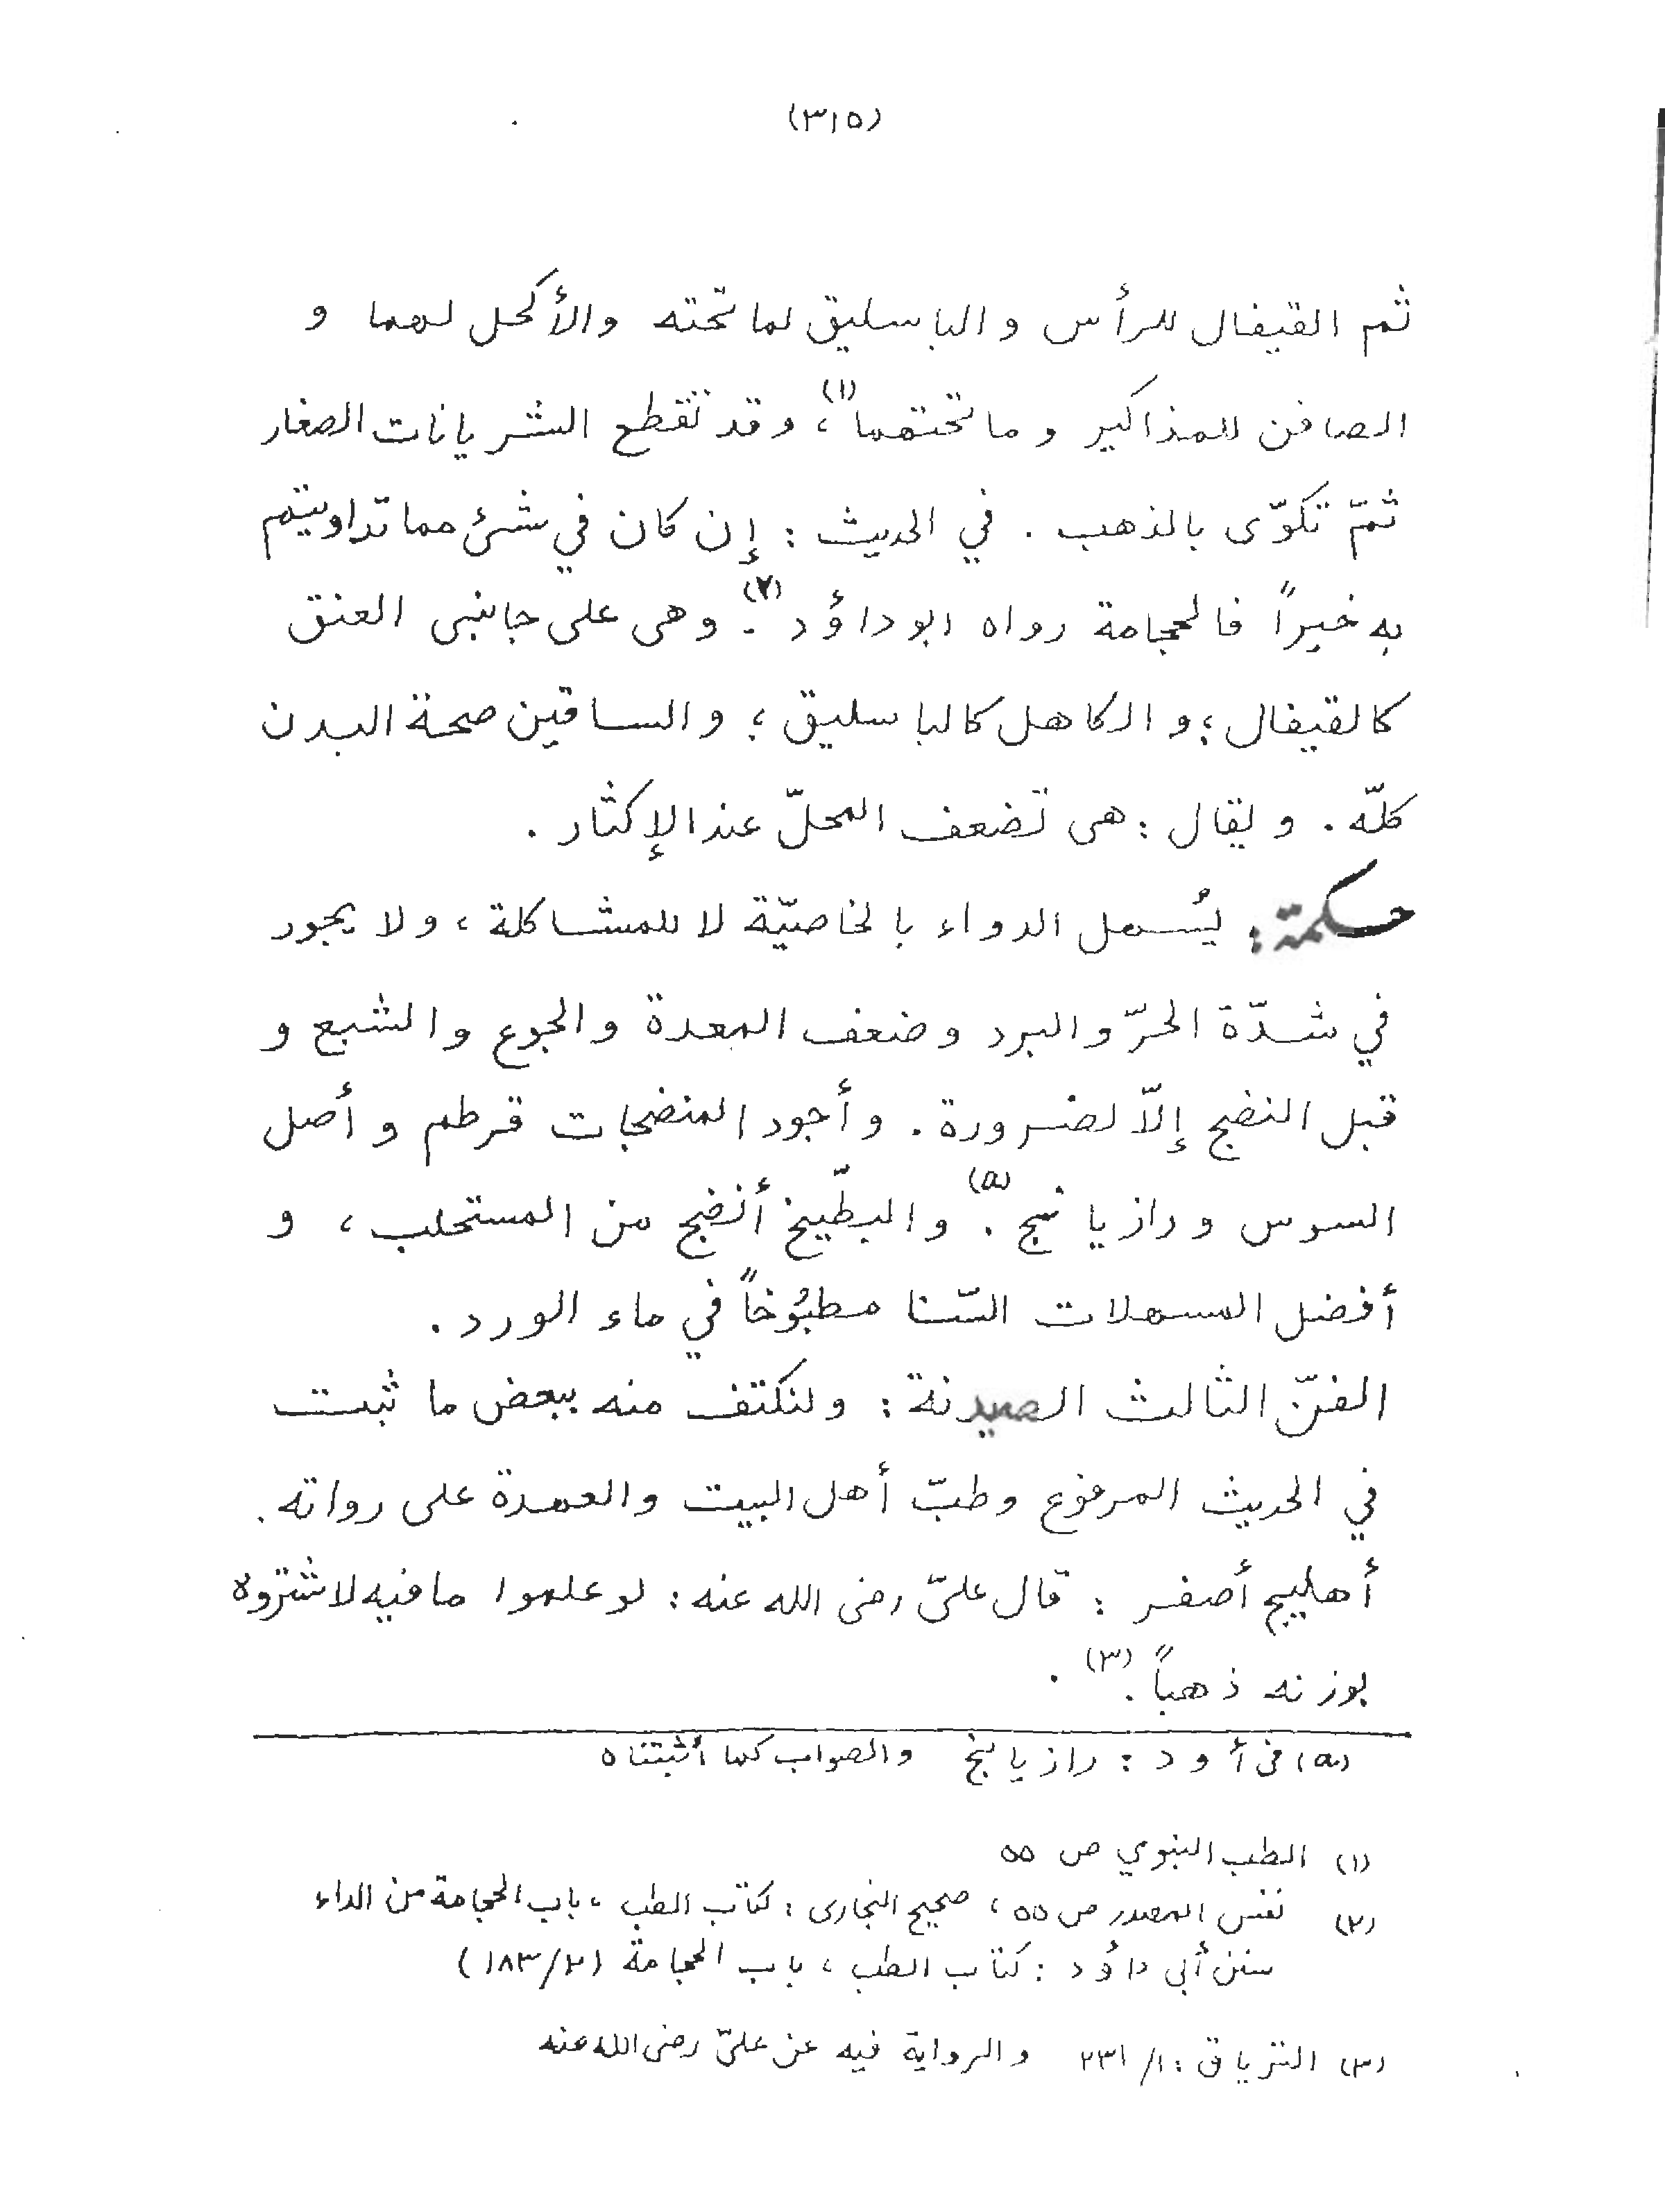 (٣١٥)
ثم القيفال للرأس والباسليق لما تحته والأكحل لهما و
الصافن للمذاكير وما تحتهما(١)، وقد تقطع الشريانات الصغار
ثمّ تكوّى بالذهب . في الحديث : إن كان في شئ مما تداويتم
به خيراً فالحجامة رواه ابوداؤد(٢). وهى على جانبى العنق
كالقيفال ؛ والكاهل كالباسليق ؛ والساقين صحة البدن
كلّه . ويقال : هى تضعف المحلّ عند الإكثار .
حكمة : يُسهل الدواء بالخاصيّة لا للمشاكلة ، ولا يجود
في شدّة الحرّ والبرد وضعف المعدة والجوع والشبع و
قبل النضج إلاّ لضرورة . وأجود المنضجات قرطم وأصل
السوس ورازيانج(a). والبطّيخ أنضج من المستحلب ، و
أفضل المسهلات السّنا مطبُوخاً في ماء الورد .
الفنّ الثالث الصيدنة : ولنكتف منه ببعض ما ثبت
في الحديث المرفوع وطبّ أهل البيت والعهدة على رواته .
أهليج أصفر : قال علىّ رضى الله عنه : لو علموا ما فيه لاشتروه
بوزنه ذهباً .(٣) .
(a) فى أ و د : رازيانخ والصواب كما أثبتناه
(١) الطب النبوي ص ٥٥
(٢) نفس المصدر ص ٥٥ ، صحيح البخارى : كتاب الطب ، باب الحجامة من الداء
سنن أبى داؤد : كتاب الطب ، باب الحجامة (٢/١٨٣)
(٣) الترياق : ١/ ٢٣١ والرواية فيه عن علىّ رضى الله عنه